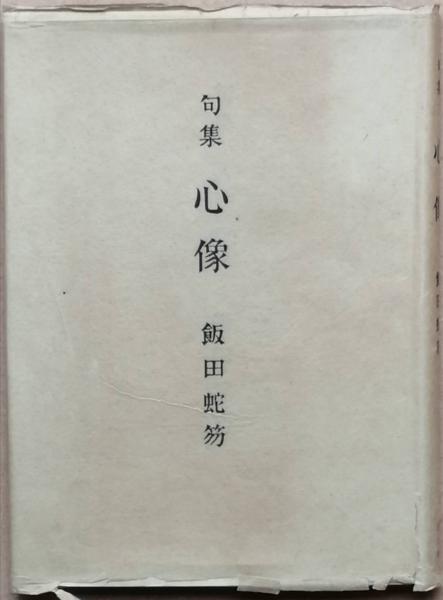 句集 心像 飯田蛇笏